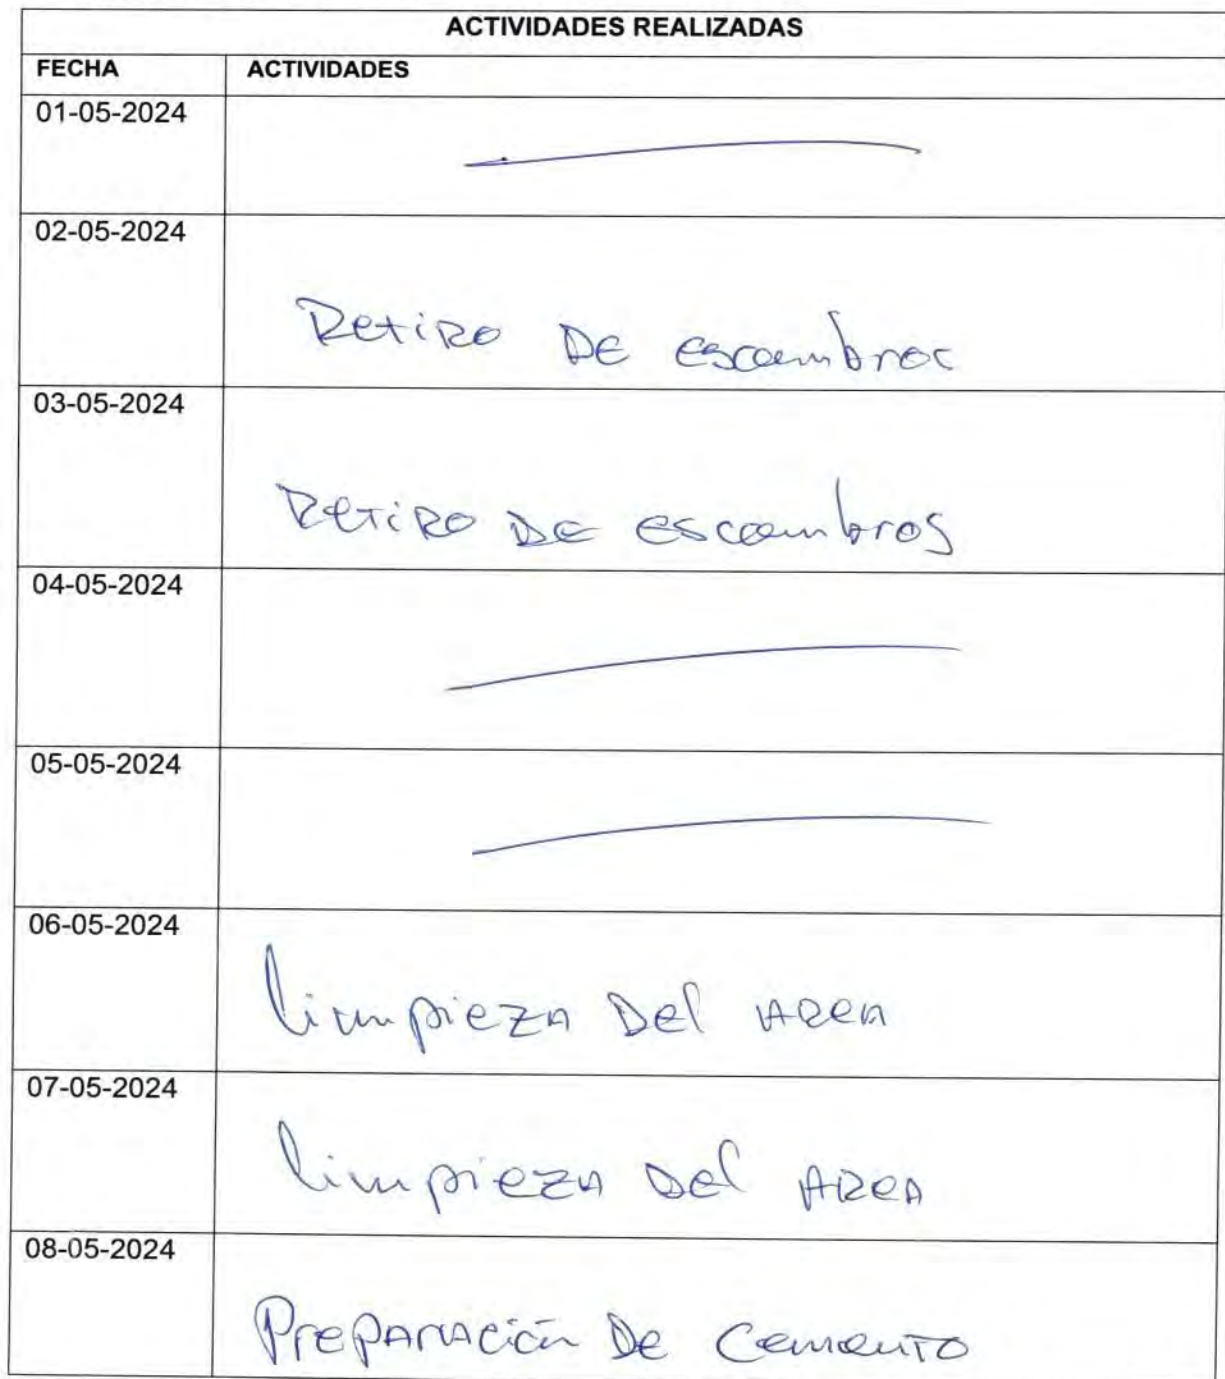 ACTIVIDADES REALIZADAS
FECHA ACTIVIDADES
01-05-2024
02-05-2024
Retiro De escambros
03-05-2024
Retiro De escambros
04-05-2024
05-05-2024
06-05-2024
limpieza Del AReA
07-05-2024
limpieza Del AReA
08-05-2024
PrePARACión De Cemento